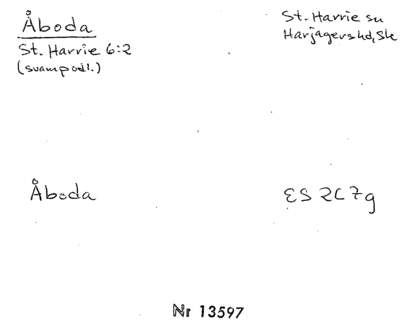 Åboda
St. Harrie 6:2
(svampodl.)
St. Harrie sn
Harjagers hd, Sk
Åboda
ES 2C 7g
Nr 13597